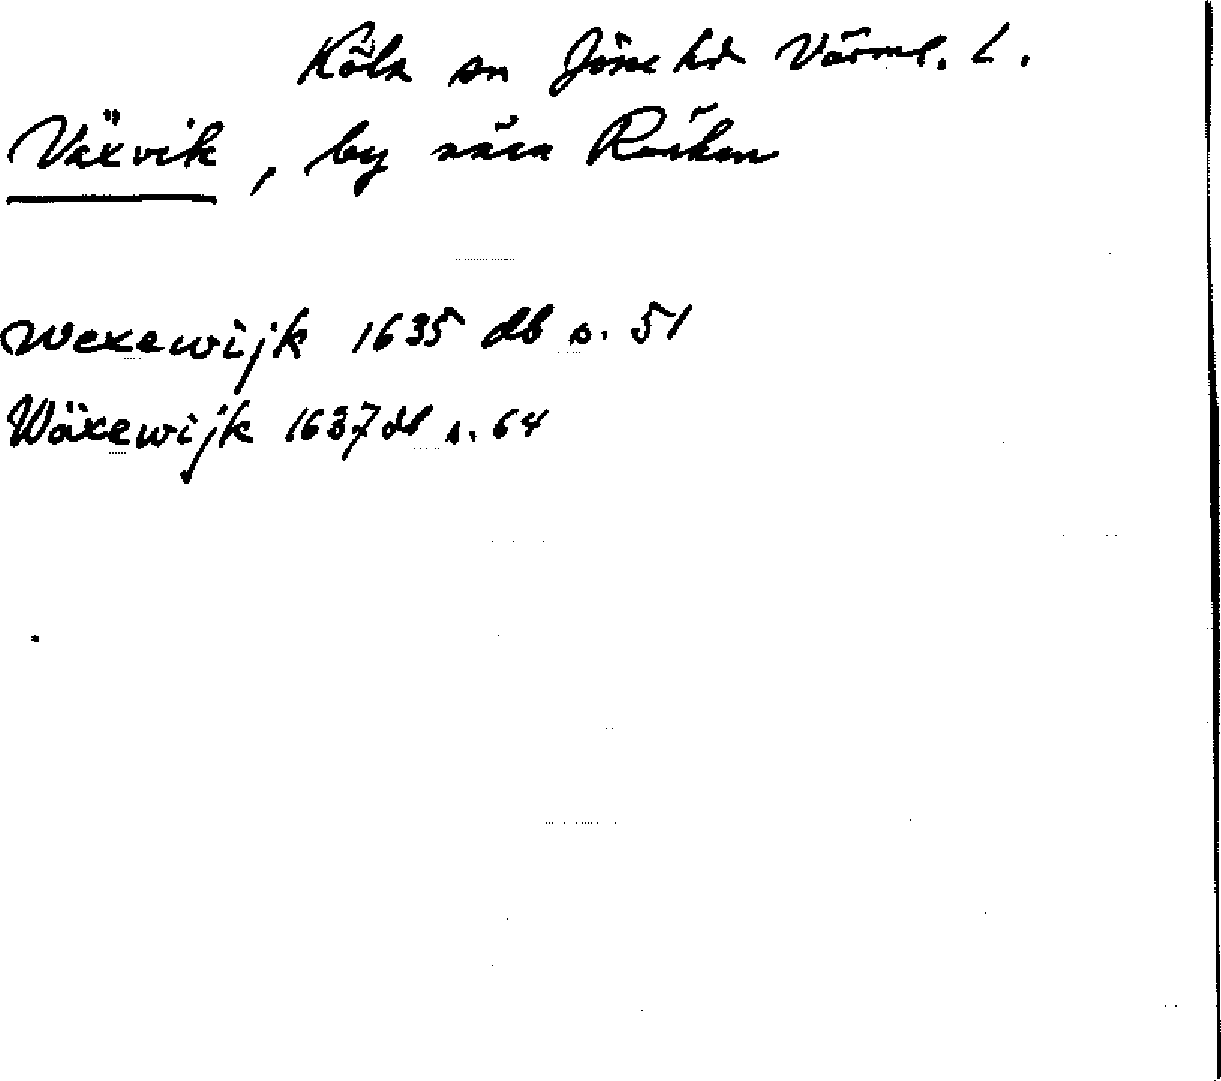 Köla sn Jösse hd Värml. L.
Växvik, by nära Räcken
Wexewijk 1635 db s. 51
Wäxewijk 1637 db s. 64